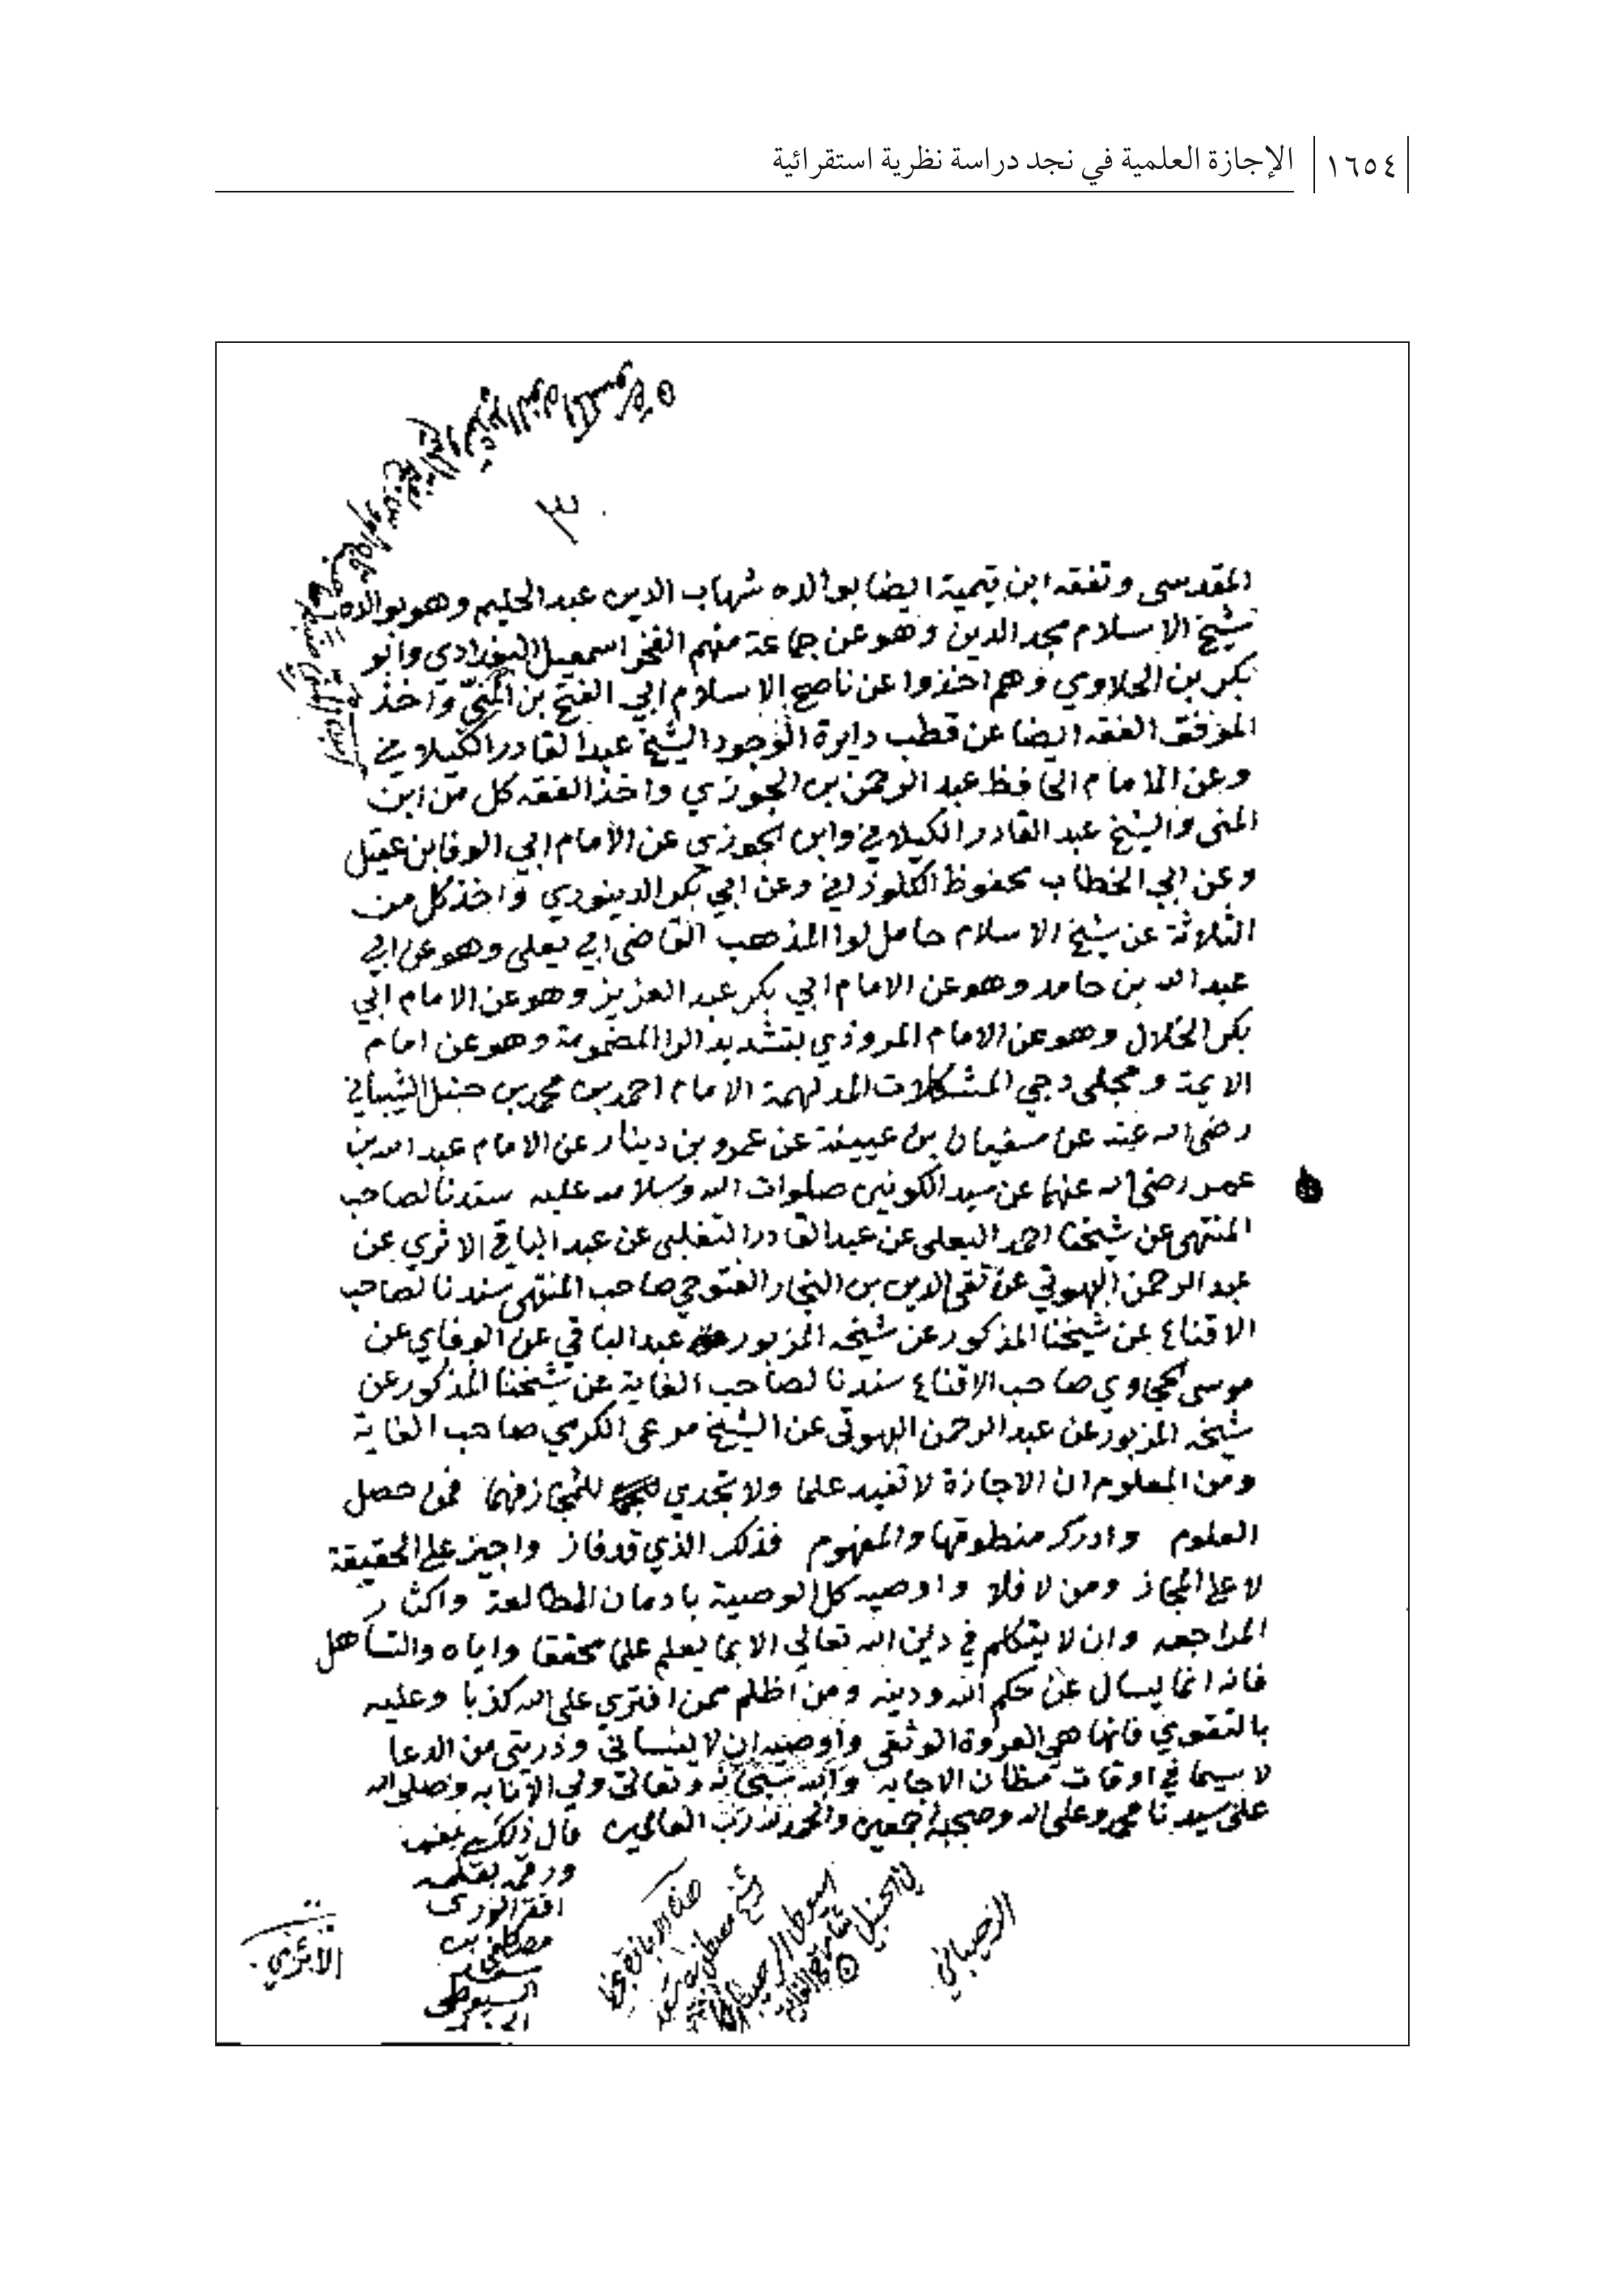 ١٦٥٤ الإجازة العلمية في نجد دراسة نظرية استقرائية
٣
المقدسي وتفقه ابن تيمية ايضا بوالده شهاب الدين عبد الحليم وهو بوالده
شيخ الاسلام مجد الدين وهو عن جماعة منهم الفخر اسمعيل البغدادي وابو
بكر بن الحلاوي وهم اخذوا عن ناصح الاسلام ابي الفتح بن المني واخذ
الموفق الفقه ايضا عن قطب دايرة الوجود الشيخ عبد القادر الكيلاني
وعن الامام الحافظ عبد الرحمن بن الجوزي واخذ الفقه كل من ابن
المنى والشيخ عبد القادر الكيلاني وابن الجوزي عن الامام ابي الوفا بن عقيل
وعن ابي الخطاب محفوظ الكلوذاني وعن ابي بكر الدينوري واخذ كل من
الثلاثة عن شيخ الاسلام حامل لوا المذهب القاضي ابي يعلى وهو عن ابي
عبد الله بن حامد وهو عن الامام ابي بكر عبد العزيز وهو عن الامام ابي
بكر الخلال وهو عن الامام المروذي بتشديد الرا المضمومة وهو عن امام
الايمة ومجلى دجي المشكلات المدلهمة الامام احمد بن محمد بن حنبل الشيباني
رضي الله عنه عن سفيان بن عيينة عن عمرو بن دينار عن الامام عبد الله بن
عمر رضي الله عنهما عن سيد الكونين صلوات الله وسلامه عليه سندنا لصاحب
المنتهى عن شيخنا احمد البعلي عن عبد القادر التغلبي عن عبد الباقي الاثري عن
عبد الرحمن البهوتي عن تقي الدين بن النجار الفتوحي صاحب المنتهى سندنا لصاحب
الاقناع عن شيخنا المذكور عن شيخه المزبور عن عبد الباقي عن الوفاي عن
موسى الحجاوي صاحب الاقناع سندنا لصاحب الغاية عن شيخنا المذكور عن
شيخه المزبور عن عبد الرحمن البهوتي عن الشيخ مرعي الكرمي صاحب الغاية
ومن المعلوم ان الاجازة لا تفيد علما ولا تجدي للمجاز فهما فمن حصل
العلوم وادرك منطوقها والمفهوم فذلك الذي قد فاز واجيز على الحقيقة
لا على المجاز ومن لا فلا واوصيه كل الوصية بادمان المطالعة واكثار
المراجعه وان لا يتكلم في دين الله تعالي الا بما يعلم علما محققا واياه والتساهل
فانه انما يسال عن حكم الله ودينه ومن اظلم ممن افتري على الله كذبا وعليه
بالتقوي فانها هي العروة الوثقي واوصيه ان لا ينساني وذريتي من الدعا
لا سيما في اوقات مظان الاجابه والله سبحانه وتعالى ولي الاثابه وصلى الله
على سيدنا محمد وعلى اله وصحبه اجمعين والحمد لله رب العالمين قال ذلك بفمه
ورقمه بقلمه
افقر الورى
مصطفى بن
سعد
السيوطي
الاثري